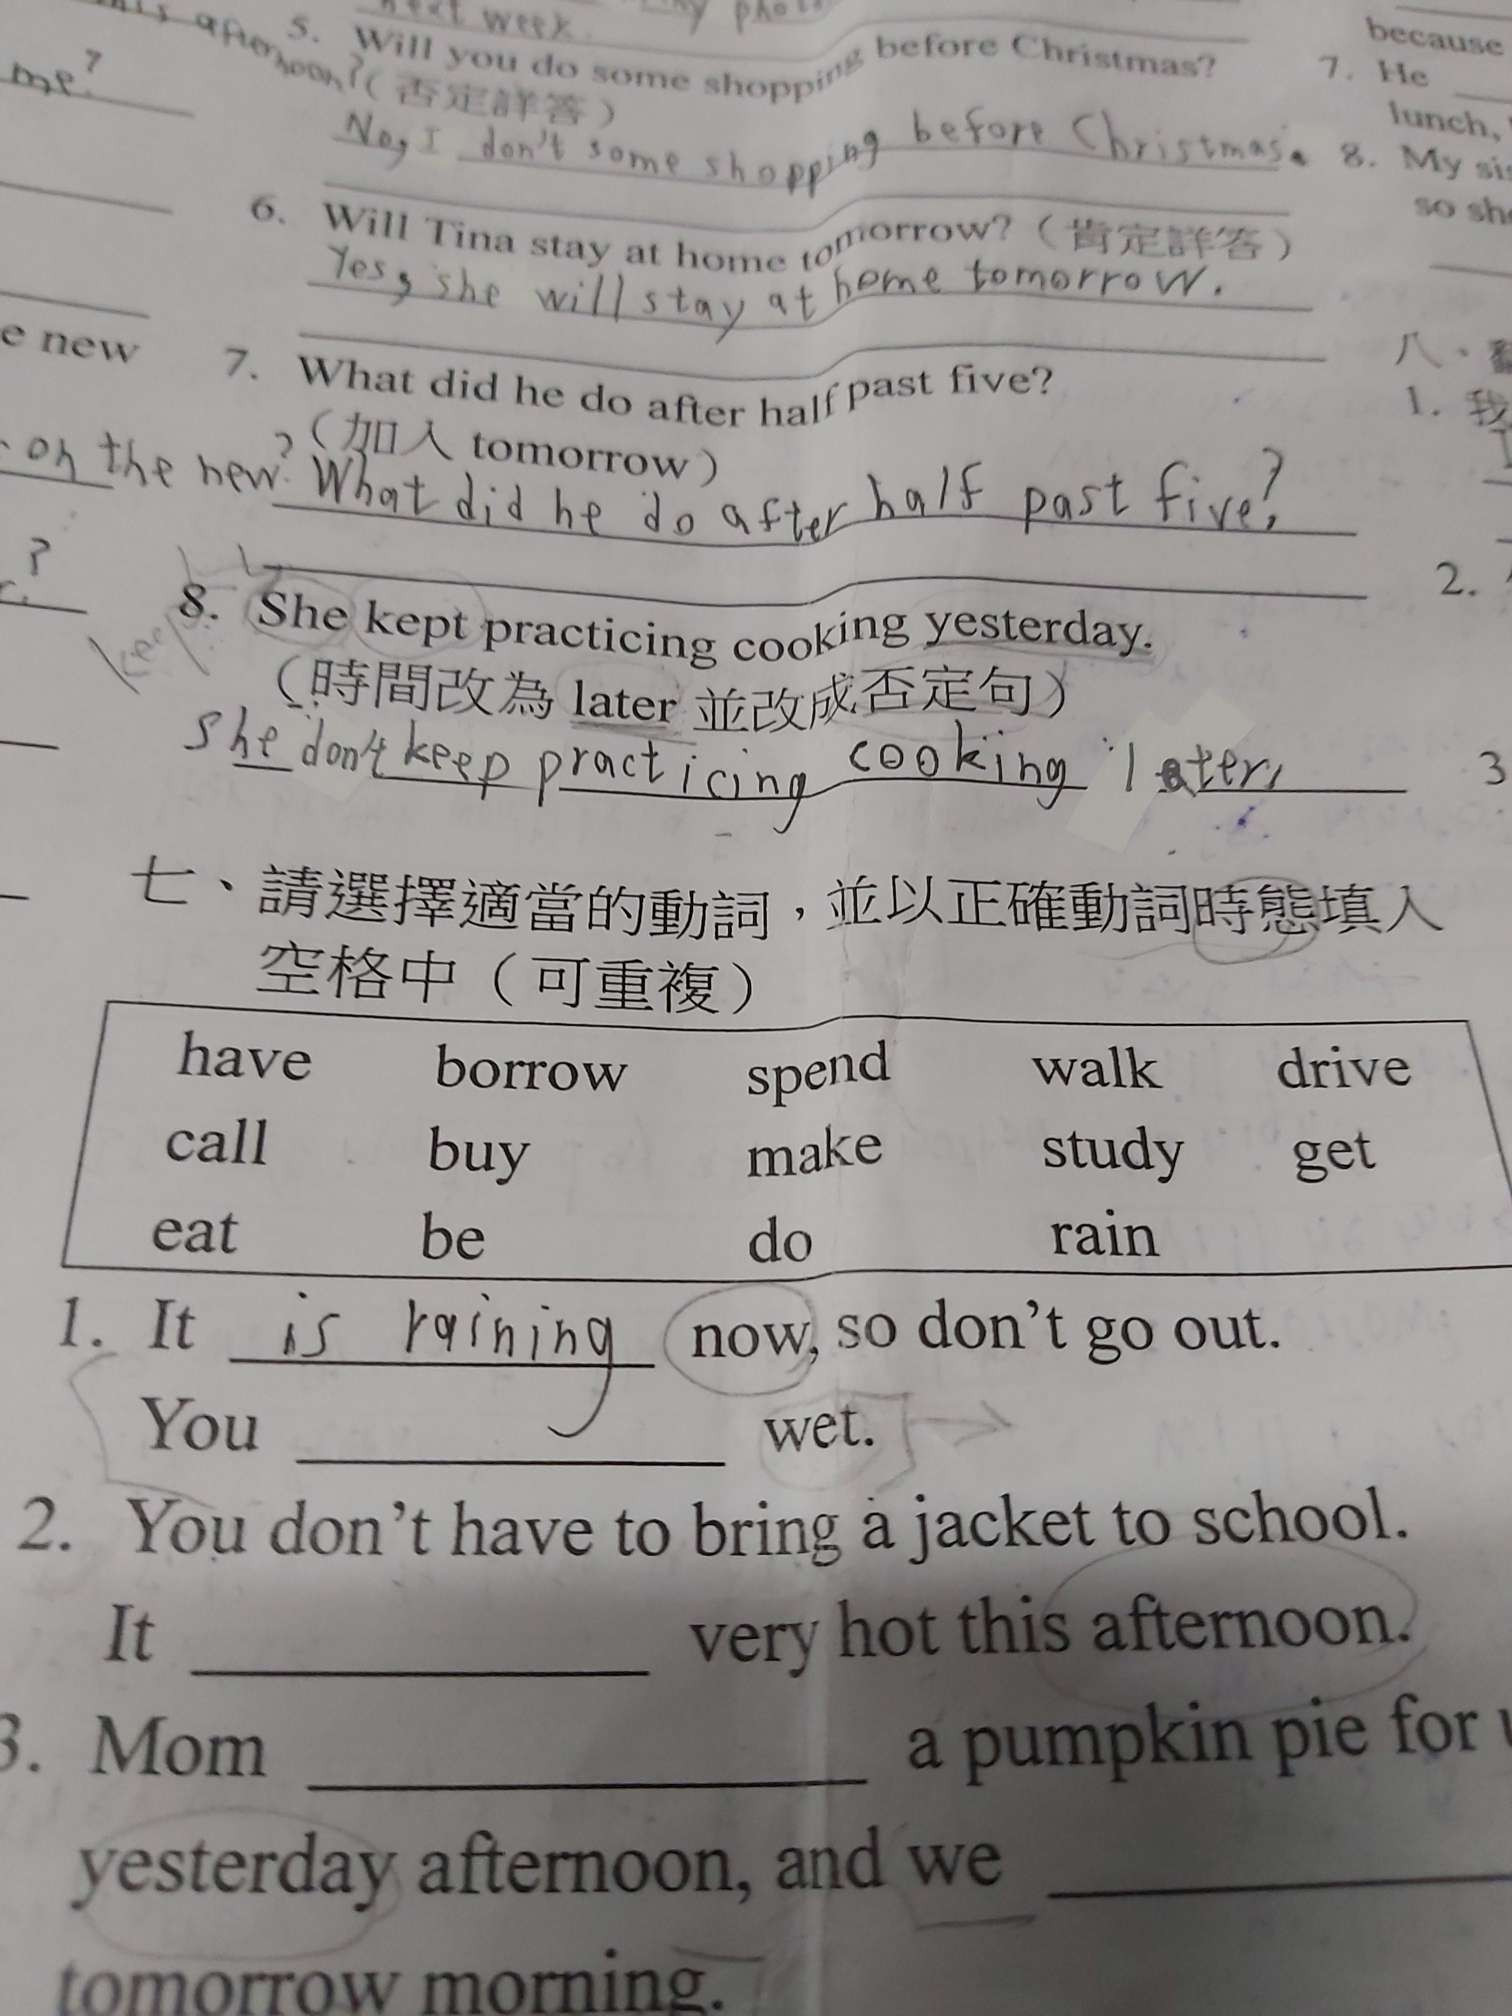 next week.
afternoon?
me.?
5. Will you do some shopping before Christmas?
(否定詳答)
No, I don't some shopping before Christmas.
6. Will Tina stay at home tomorrow?(肯定詳答)
Yes, she will stay at home tomorrow.
7. What did he do after half past five?
(加入 tomorrow)
What did he do after half past five?
8. She kept practicing cooking yesterday.
(時間改為 later 並改成否定句)
She don't keep practicing cooking later.
e new
on the new?
?
七、請選擇適當的動詞,並以正確動詞時態填入
空格中(可重複)
have borrow spend walk drive
call buy make study get
eat be do rain
1. It is raining now, so don't go out.
You wet.
2. You don't have to bring a jacket to school.
It very hot this afternoon.
3. Mom a pumpkin pie for
yesterday afternoon, and we
tomorrow morning.
because
7. He
lunch,
8. My
so
八、
1. 我
2.
3